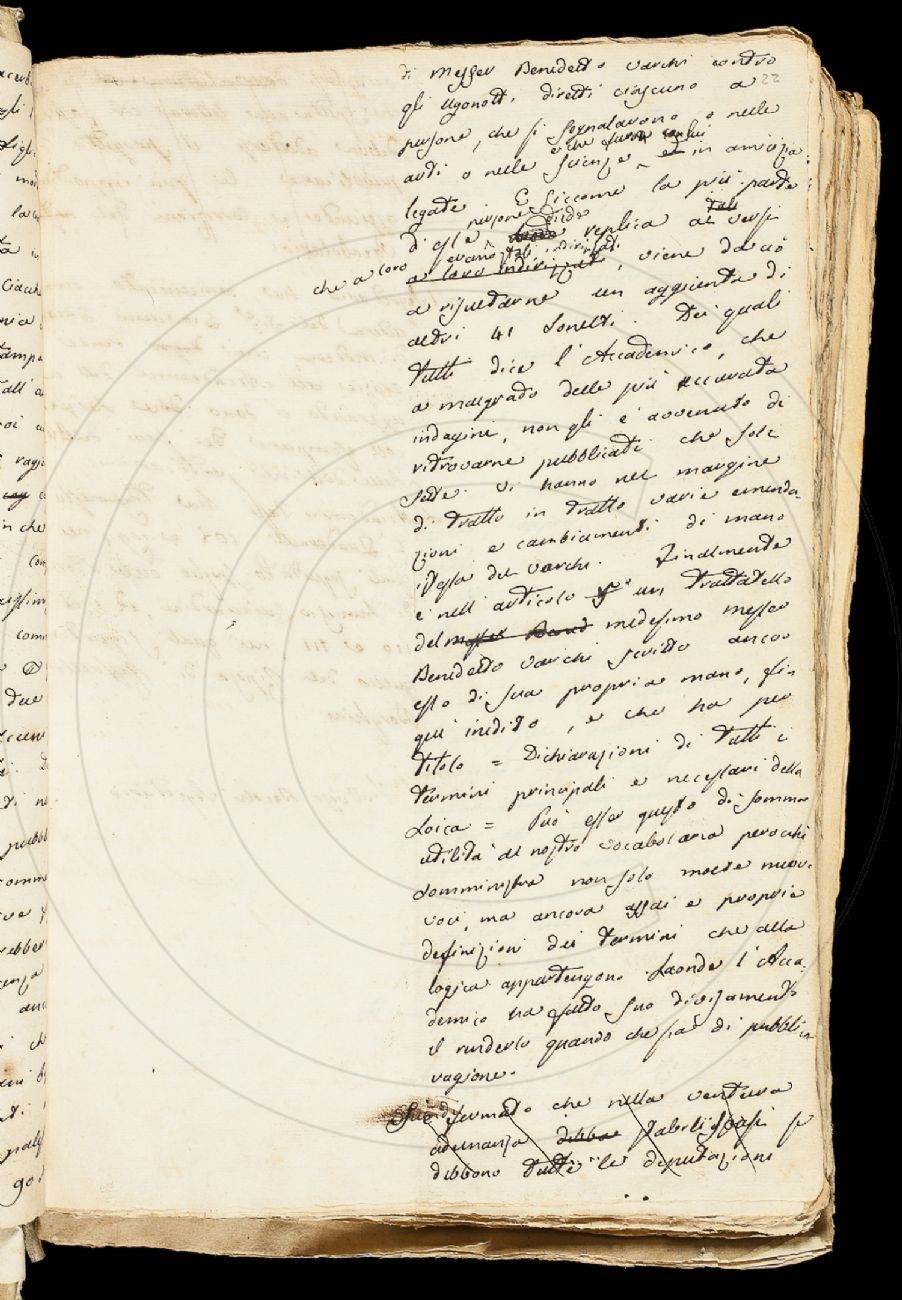 22
di Messer Benedetto Varchi contro
gli Ugonotti, diretti ciascuno a
persone, che si segnalavono o nelle
arti o nelle scienze, e che furon con lui in amicizia
legate. E siccome la più parte
d'esse persone diede replica ai versi
che a loro erano stati indirizzati, viene da ciò
a risultarne un aggiunta di
altri 41 Sonetti. Dei quali
tutti dice l'Accademico, che
a malgrado delle più accurate
indagini, non gli è avvenuto di
ritrovarne pubblicati che soli
sette. Vi hanno nel margine
di tratto in tratto varie emenda
zioni e cambiamenti di mano
istessa del Varchi. Finalmente
è nell'articolo un trattatello
del medesimo messer
Benedetto Varchi scritto ancor
esso di sua propria mano, fin
qui inedito, e che ha per
titolo = Dichiarazioni di tutti i
termini principali e necessari della
Loica = Può esser questo di somma
utilità al nostro vocabolario perocchè
somministra non solo molte nuove
voci, ma ancora assai e proprie
definizioni dei termini che alla
logica appartengono. Laonde l'Acca=
demico ha fatto suo divisamento
il renderlo quando che sia di pubblica
ragione.
fermato che nella ventura
adunanza debba stabilirsi se
debbono tutte le deputazioni